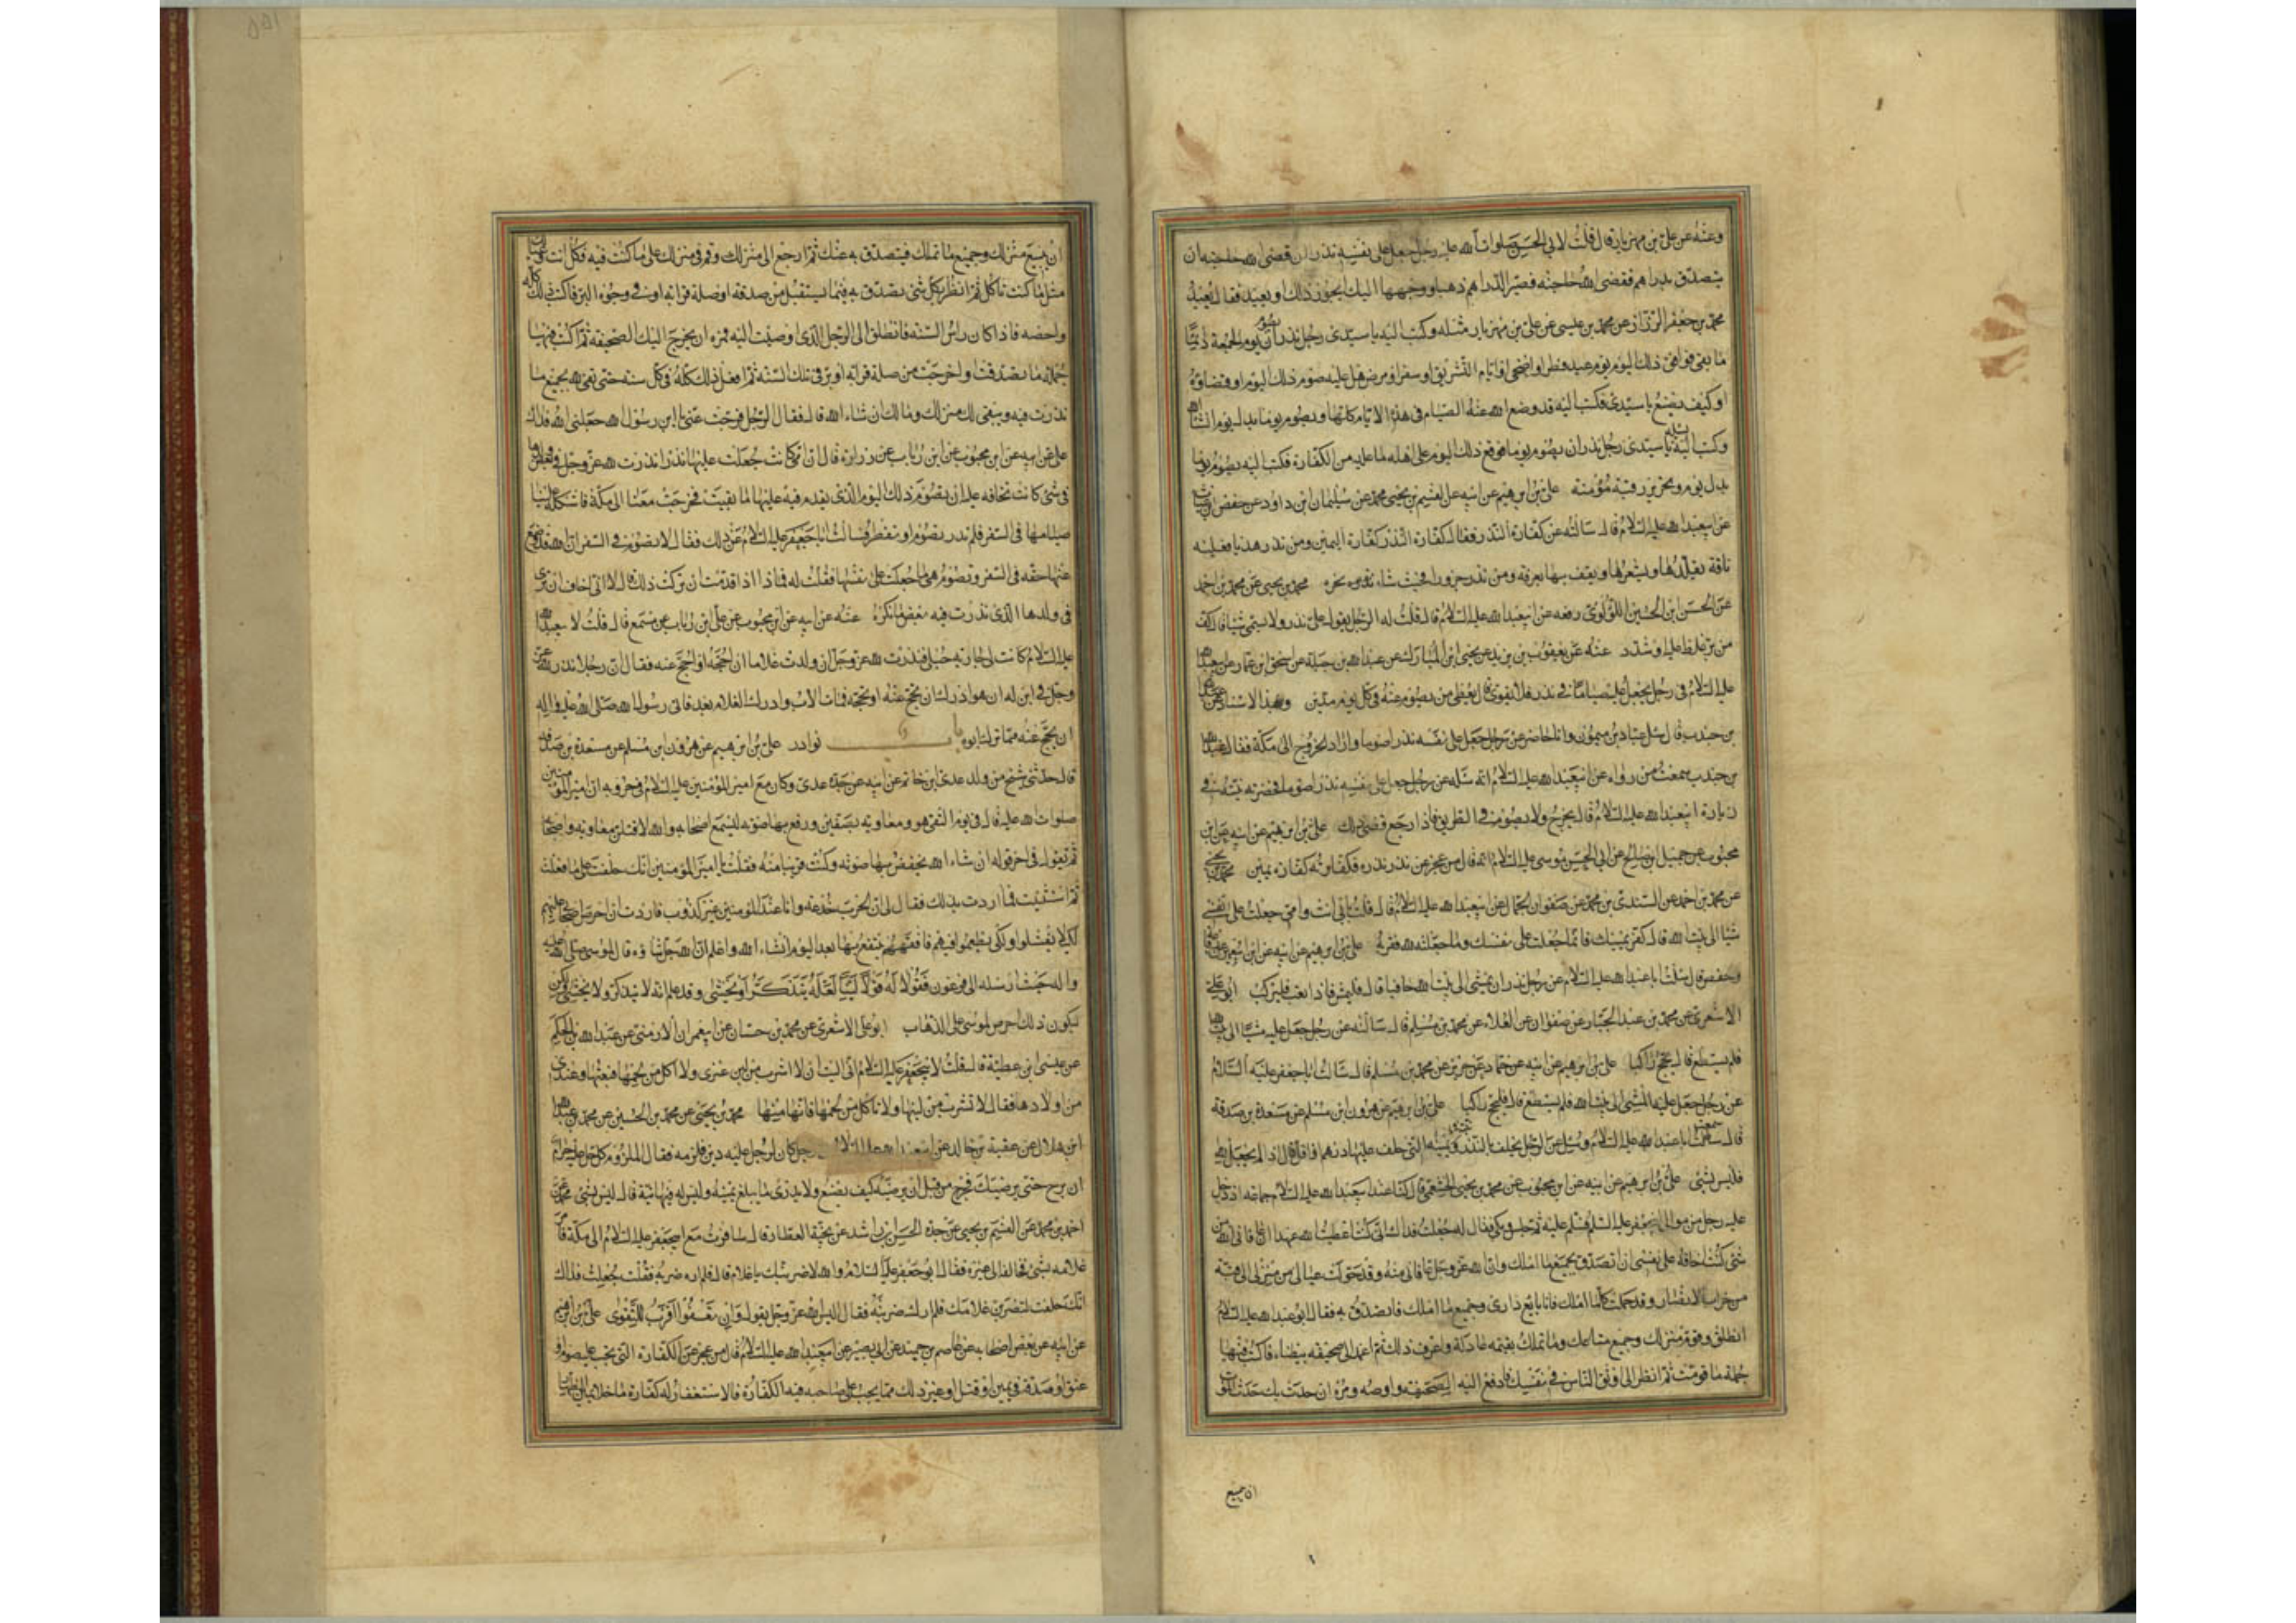 وعنه عن علي بن مهزيار قال قلت لابي الحسن صلوات الله عليه رجل جعل على نفسه نذرا ان قضى الله حاجته ان
يتصدق بدراهم فقضى الله حاجته فصير الدراهم ذهبا ووجهها اليك ايجوز ذلك او يعيد فقال يعيد
محمد بن جعفر الرزاز عن محمد بن عيسى عن علي بن مهزيار مثله وكتب اليه يا سيدي رجل نذر ان يصوم يوم الجمعة دائما
ما بقي فوافق ذلك اليوم يوم عيد فطر او اضحى او ايام التشريق او سفر او مرض هل عليه صوم ذلك اليوم او قضاؤه
او كيف يصنع يا سيدي فكتب اليه قد وضع الله عنه الصيام في هذه الايام كلها ويصوم يوما بدل يوم انشاء الله
وكتب اليه يسئله يا سيدي رجل نذر ان يصوم يوما فوقع ذلك اليوم على اهله ما عليه من الكفارة فكتب اليه يصوم يوما
بدل يوم وتحرير رقبة مؤمنة علي بن ابرهيم عن ابيه عن القسم بن يحيى محمد عن سليمان ابن داود عن حفص بن غياث
عن ابيعبد الله عليه السلام قال سالته عن كفارة النذر فقال كفارة النذر كفارة اليمين ومن نذر هديا فعليه
ناقة يقلدها ويشعرها ويقف بها بعرفة ومن نذر جزورا فحيث شاء نحره محمد بن يحيى عن محمد بن احمد
عن الحسن ابن الحسين اللؤلؤي رفعه عن ابيعبد الله عليه السلام قال قلت له الرجل يقول علي نذر ولا يسمي شيئا قال كف
من بر غلظ عليه او شدد عنه عن يعقوب بن يزيد عن يحيى ابن المبارك عن عبد الله بن جبلة عن اسحق ابن عمار عن ابيعبد الله
عليه السلام في رجل يجعل عليه صياما في نذر فلا يقوى قال يعطي من يصوم عنه في كل يوم مدين وبهذا الاسناد عن
بن جندب قال سئل عباد بن ميمون وانا حاضر عن رجل جعل على نفسه نذرا صوما واراد الخروج الى مكة فقال عبد الله
بن جندب سمعت من رواه عن ابيعبد الله عليه السلام انه سئله عن رجل جعل على نفسه نذرا صوما فحضرته نيته في
زيارة ابيعبد الله عليه السلام قال يخرج ولا يصوم في الطريق فاذا رجع قضى ذلك علي بن ابرهيم عن ابيه عن ابن
محبوب عن جميل ابن صالح عن ابي الحسن موسى عليه السلام انه قال من عجز عن نذر نذره فكفارته كفارة يمين محمد بن يحيى
عن محمد بن احمد عن السندي بن محمد عن صفوان الجمال عن ابيعبد الله عليه السلام قال قلت بابي انت وامي جعلت على نفسي
شيئا الى بيت الله قال كفر يمينك فانما جعلت على نفسك وما جعلته لله ففه به علي بن ابرهيم عن ابيه عن ابن ابيعمير عن رفاعة
وحفص قال سئلت ابا عبد الله عليه السلام عن رجل نذر ان يمشي الى بيت الله حافيا قال فليمش فاذا تعب فليركب ابو علي
الاشعري عن محمد بن عبد الجبار عن صفوان عن العلاء عن محمد بن مسلم قال سالته عن رجل جعل عليه مشيا الى بيت الله
فلم يستطع قال يحج راكبا علي بن ابرهيم عن ابيه عن حماد عن حريز عن محمد بن مسلم قال سالت ابا جعفر عليه السلام
عن رجل جعل عليه المشي الى بيت الله فلم يستطع قال فليحج راكبا علي بن ابرهيم عن هرون ابن مسلم عن مسعدة بن صدقة
قال سمعت ابا عبد الله عليه السلام وسئل عن الرجل يحلف بالنذر ونيته التي حلف عليها درهم او اقل قال اذا لم يجعل لله
فليس بشيء علي بن ابرهيم عن ابيه عن ابن محبوب عن محمد بن يحيى الخثعمي قال كنا عند ابيعبد الله عليه السلام جماعة اذ دخل
عليه رجل من موالي ابيجعفر عليه السلام فسلم عليه ثم جلس وبكى ثم قال له جعلت فداك اني كنت اعطيت الله عهدا ان عافاني الله من
شيء كنت اخافه على نفسي ان اتصدق بجميع ما املك وان الله عز وجل عافاني منه وقد حولت عيالي من منزلي الى قبة
من خراب الانصار وقد حملت كلما املك فانا بايع داري وجميع ما املك فاتصدق به فقال ابو عبد الله عليه السلام
انطلق وقوم منزلك وجميع متاعك وما تملك بقيمة عادلة واعرف ذلك ثم اعمد الى صحيفة بيضاء فاكتب فيها
جملة ما قومت ثم انظر الى اوثق الناس في نفسك فادفع اليه الصحيفة واوصه ومره ان حدث بك حدث الموت
ان يبيع
ان يبيع منزلك وجميع ما تملك فيتصدق به عنك ثم ارجع الى منزلك وقم في منزلك على ما كنت فيه فكل انت وعيالك
مثل ما كنت تاكل ثم انظر بكل شيء تصدق به فيما يستقبل من صدقة او صلة قرابة او في وجوه البر فاكتب ذلك كله
واحصه فاذا كان راس السنة فانطلق الى الرجل الذي اوصيت اليه فمره ان يخرج اليك الصحيفة ثم اكتب فيها
جملة ما تصدقت واخرجت من صلة قرابة او بر في تلك السنة ثم افعل ذلك كله في كل سنة حتى تفي لله بجميع ما
نذرت فيه ويبقى لك منزلك ومالك ان شاء الله قال فقال الرجل فرجت عني يا ابن رسول الله جعلني الله فداك
علي عن ابيه عن ابن محبوب عن ابن رئاب عن زرارة قال ان امي كانت جعلت عليها نذرا نذرت لله عز وجل في بعض ولدها
في شيء كانت تخافه عليه ان تصوم ذلك اليوم الذي يقدم فيه عليها ما بقيت فخرجت معنا الى مكة فاشكل علينا
صيامها في السفر فلم ندر تصوم او تفطر فسالت ابا جعفر عليه السلام عن ذلك فقال لا تصوم في السفر ان الله قد وضع
عنها حقه في السفر وتصوم هي ما جعلت على نفسها فقلت له فماذا اذا قدمت ان تركت ذلك قال لا اني اخاف ان ترى
في ولدها الذي نذرت فيه بعض ما تكره عنه عن ابيه عن ابن محبوب عن علي ابن رئاب عن مسمع قال قلت لابيعبد الله
عليه السلام كانت لي جارية حبلى فنذرت لله عز وجل ان ولدت غلاما ان احجه او احج عنه فقال ان رجلا نذر لله عز
وجل في ابن له ان هو ادرك ان يحج عنه او يحجه فمات الاب وادرك الغلام بعد فاتى رسول الله صلى الله عليه واله
ان يحج عنه مما ترك ابوه باب نوادر علي بن ابرهيم عن هرون ابن مسلم عن مسعدة بن صدقة
قال حدثني شيخ من ولد عدي ابن حاتم عن ابيه عن جده عدي وكان مع امير المؤمنين عليه السلام في حروبه ان امير المؤمنين
صلوات الله عليه قال في يوم التقى هو ومعاوية بصفين ورفع بها صوته ليسمع اصحابه والله لاقتلن معاوية واصحابه
ثم يقول في اخر قوله ان شاء الله يخفض بها صوته وكنت قريبا منه فقلت يا امير المؤمنين انك حلفت على ما فعلت
ثم استثنيت فما اردت بذلك فقال لي ان الحرب خدعة وانا عند المؤمنين غير كذوب فاردت ان احرض اصحابي عليهم
لكيلا يفشلوا ولكي يطمعوا فيهم فافقههم ينتفع بها بعد اليوم انشاء الله واعلم ان الله جل ثناؤه قال لموسى صلى الله عليه
واله حيث ارسله الى فرعون فقولا له قولا لينا لعله يتذكر او يخشى وقد علم انه لا يتذكر ولا يخشى ولكن
ليكون ذلك احرص لموسى على الذهاب ابو علي الاشعري عن محمد بن حسان عن ابيعمران الارمني عن عبد الله بن الحكم
عن عيسى ابن عطية قال قلت لابيجعفر عليه السلام اني اليت ان لا اشرب من لبن عنزي ولا اكل من لحمها فبعتها وعندي
من اولادها فقال لا تشرب من لبنها ولا تاكل من لحمها فانها منها محمد بن يحيى عن محمد بن الحسين عن محمد بن عبد الله
ابن هلال عن عقبة بن خالد عن ابيعبد الله عليه السلام رجل كان لرجل عليه دين فلزمه فقال الملزوم كل حل عليه حرام
ان برح حتى يرضيك فخرج من قبل ان يرضيه كيف يصنع ولا يدري ما يبلغ يمينه وليس له فيها نية قال ليس بشيء محمد عن
احمد بن محمد عن القسم بن يحيى عن جده الحسن ابن راشد عن نجية العطار قال سافرت مع ابيجعفر عليه السلام الى مكة فامر
غلامه بشيء فخالفه الى غيره فقال ابو جعفر عليه السلام والله لاضربنك يا غلام قال فلم اره ضربه فقلت جعلت فداك
انك حلفت لتضربن غلامك فلم ارك ضربته فقال اليس الله عز وجل يقول وان تعفوا اقرب للتقوى علي بن ابرهيم
عن ابيه عن بعض اصحابه عن عاصم بن حميد عن ابي بصير عن ابيعبد الله عليه السلام قال من عجز عن الكفارة التي تجب عليه صوم او
عتق او صدقة في يمين او قتل او غير ذلك مما يجب على صاحبه فيه الكفارة فالاستغفار له كفارة ما خلا يمين الظهار